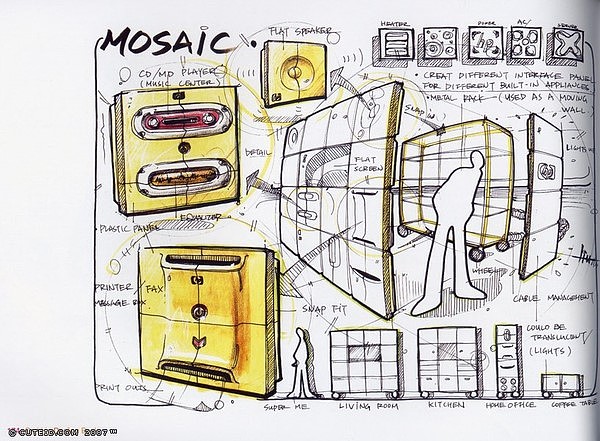 MOSAIC
FLAT SPEAKER
HEATER
POWER
AC/
CD/MD PLAYER
(MUSIC CENTER)
• CREAT DIFFERENT INTERFACE PANEL
FOR DIFFERENT BUILT-IN APPLIANCES.
• METAL RACK - (USED AS A MOVING
WALL)
SNAP IN
LIGHTS
DETAIL
FLAT
SCREEN
EQUALIZER
• PLASTIC PANEL
WHEEL
PRINTER
FAX
MESSAGE BOX
CABLE MANAGEMENT
SNAP FIT
COULD BE
TRANSLUCENT/
(LIGHTS)
PRINT OUTS
SUPER ME
LIVING ROOM
KITCHEN
HOME OFFICE
COFFEE TABLE
© CUTEID.COM 2007™